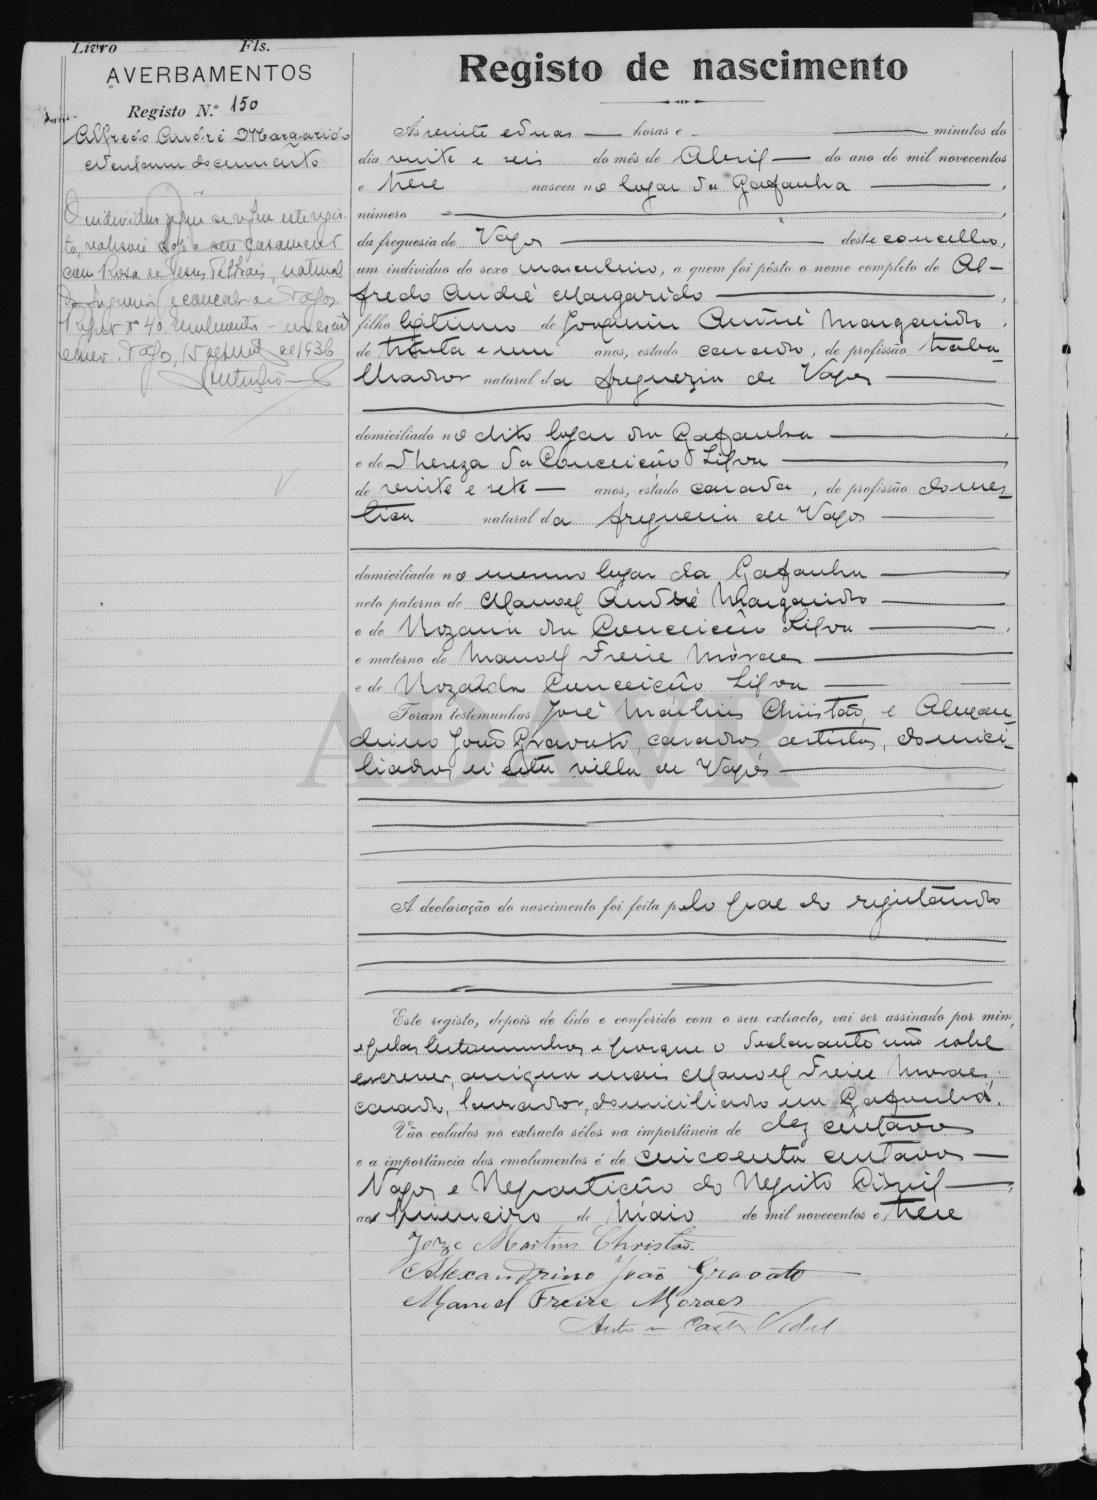 Livro Fls.
AVERBAMENTOS
Registo N.º 150
Alfredo André Margarido
e Nenhum documento
O individuo a quem se refere este regis-
to, realisou hoje o seu casamento
com Rosa de Jesus, natural
da freguesia e concelho de Vagos.
Registo nº 40. Emolumentos - um escudo
Vagos, 15 de 1936
Registo de nascimento
Ás vinte e duas — horas e — minutos do
dia vinte e seis do mês de Abril — do ano de mil novecentos
e treze nasceu no lugar da Gafanha —,
número —,
da freguesia de Vagos — deste concelho,
um individuo do sexo masculino, a quem foi pôsto o nome completo de Al-
fredo André Margarido —,
filho legitimo de Joaquim André Margarido,
de trinta e um anos, estado casado, de profissão traba-
lhador natural da freguezia de Vagos —
domiciliado no dito lugar da Gafanha —,
e de Thereza da Conceição Silva —,
de vinte e sete — anos, estado casada, de profissão domes-
tica natural da freguesia de Vagos —
domiciliada no mesmo lugar da Gafanha —,
neto paterno de Manoel André Margarido —
e de Rozaria da Conceição Silva —,
e materno de Manoel Freire Móraes —
e de Roza da Conceição Silva —
Foram testemunhas José Martins Christão, e Alexan-
drino João Gravato, casados, artistas, domici-
liados n'esta villa de Vagos —
ADAVR
A declaração do nascimento foi feita pelo pae do registando
Este registo, depois de lido e conferido com o seu extracto, vai ser assinado por mim,
e pelas testemunhas e porque o declarante não sabe
escrever, assigna mais Manoel Freire Moraes,
casado, lavrador, domiciliado na Gafanha.
Vão colados no extracto sêlos na importância de dez centavos
e a importância dos emolumentos é de cincoenta centavos —
Vagos e Repartição do Registo Civil —,
aos primeiro de Maio de mil novecentos e treze
Jorge Martins Christão.
Alexandrino João Gravato
Manuel Freire Moraes
Vidal